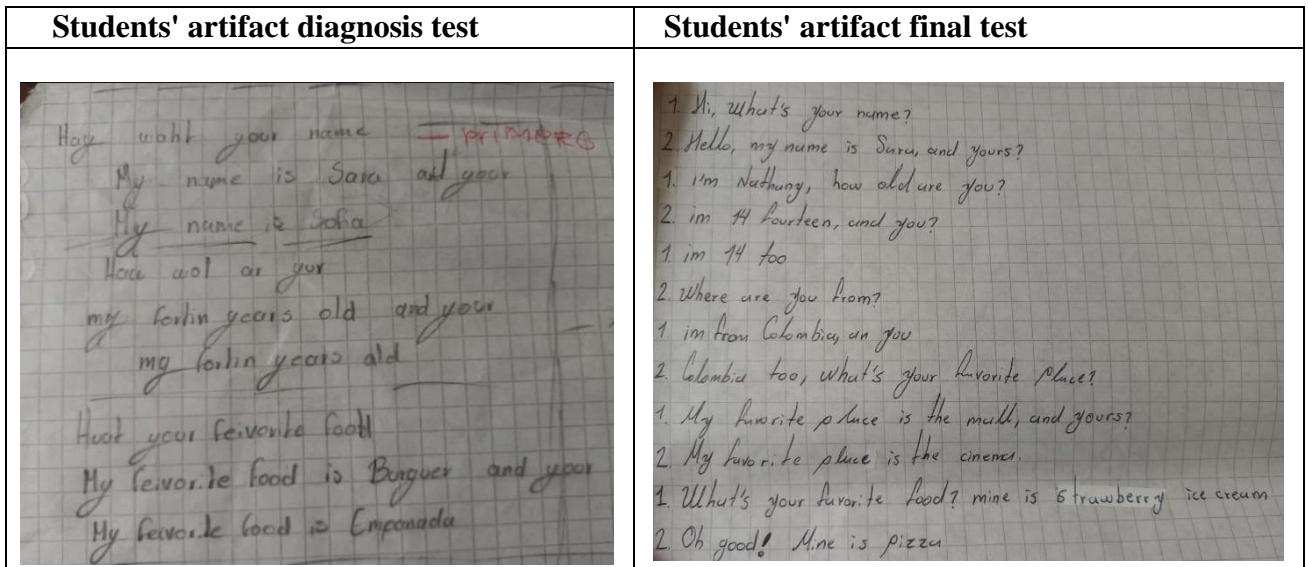 Students' artifact diagnosis test
Students' artifact final test
Hay waht your name — primero
My name is Sara and your
My name is Sofia
How wol ar yur
my fortin years old and your
my fortin years ald
Huat your feivorite food
My feivorite food is Burguer and your
My feivorite food is Empanada
1. Hi, What's your name?
2. Hello, my name is Sara, and yours?
1. I'm Nathany, how old are you?
2. im 14 fourteen, and you?
1. im 14 too
2. Where are you from?
1. im from Colombia, an you
2. Colombia too, what's your favorite place?
1. My favorite place is the mall, and yours?
2. My favorite place is the cinema.
1. What's your favorite food? mine is strawberry ice cream
2. Oh good! Mine is pizza